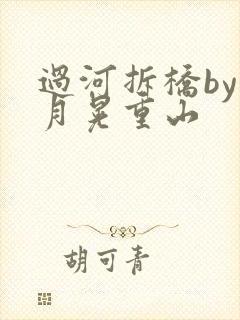 過河拆橋by
月晃重山
胡可青